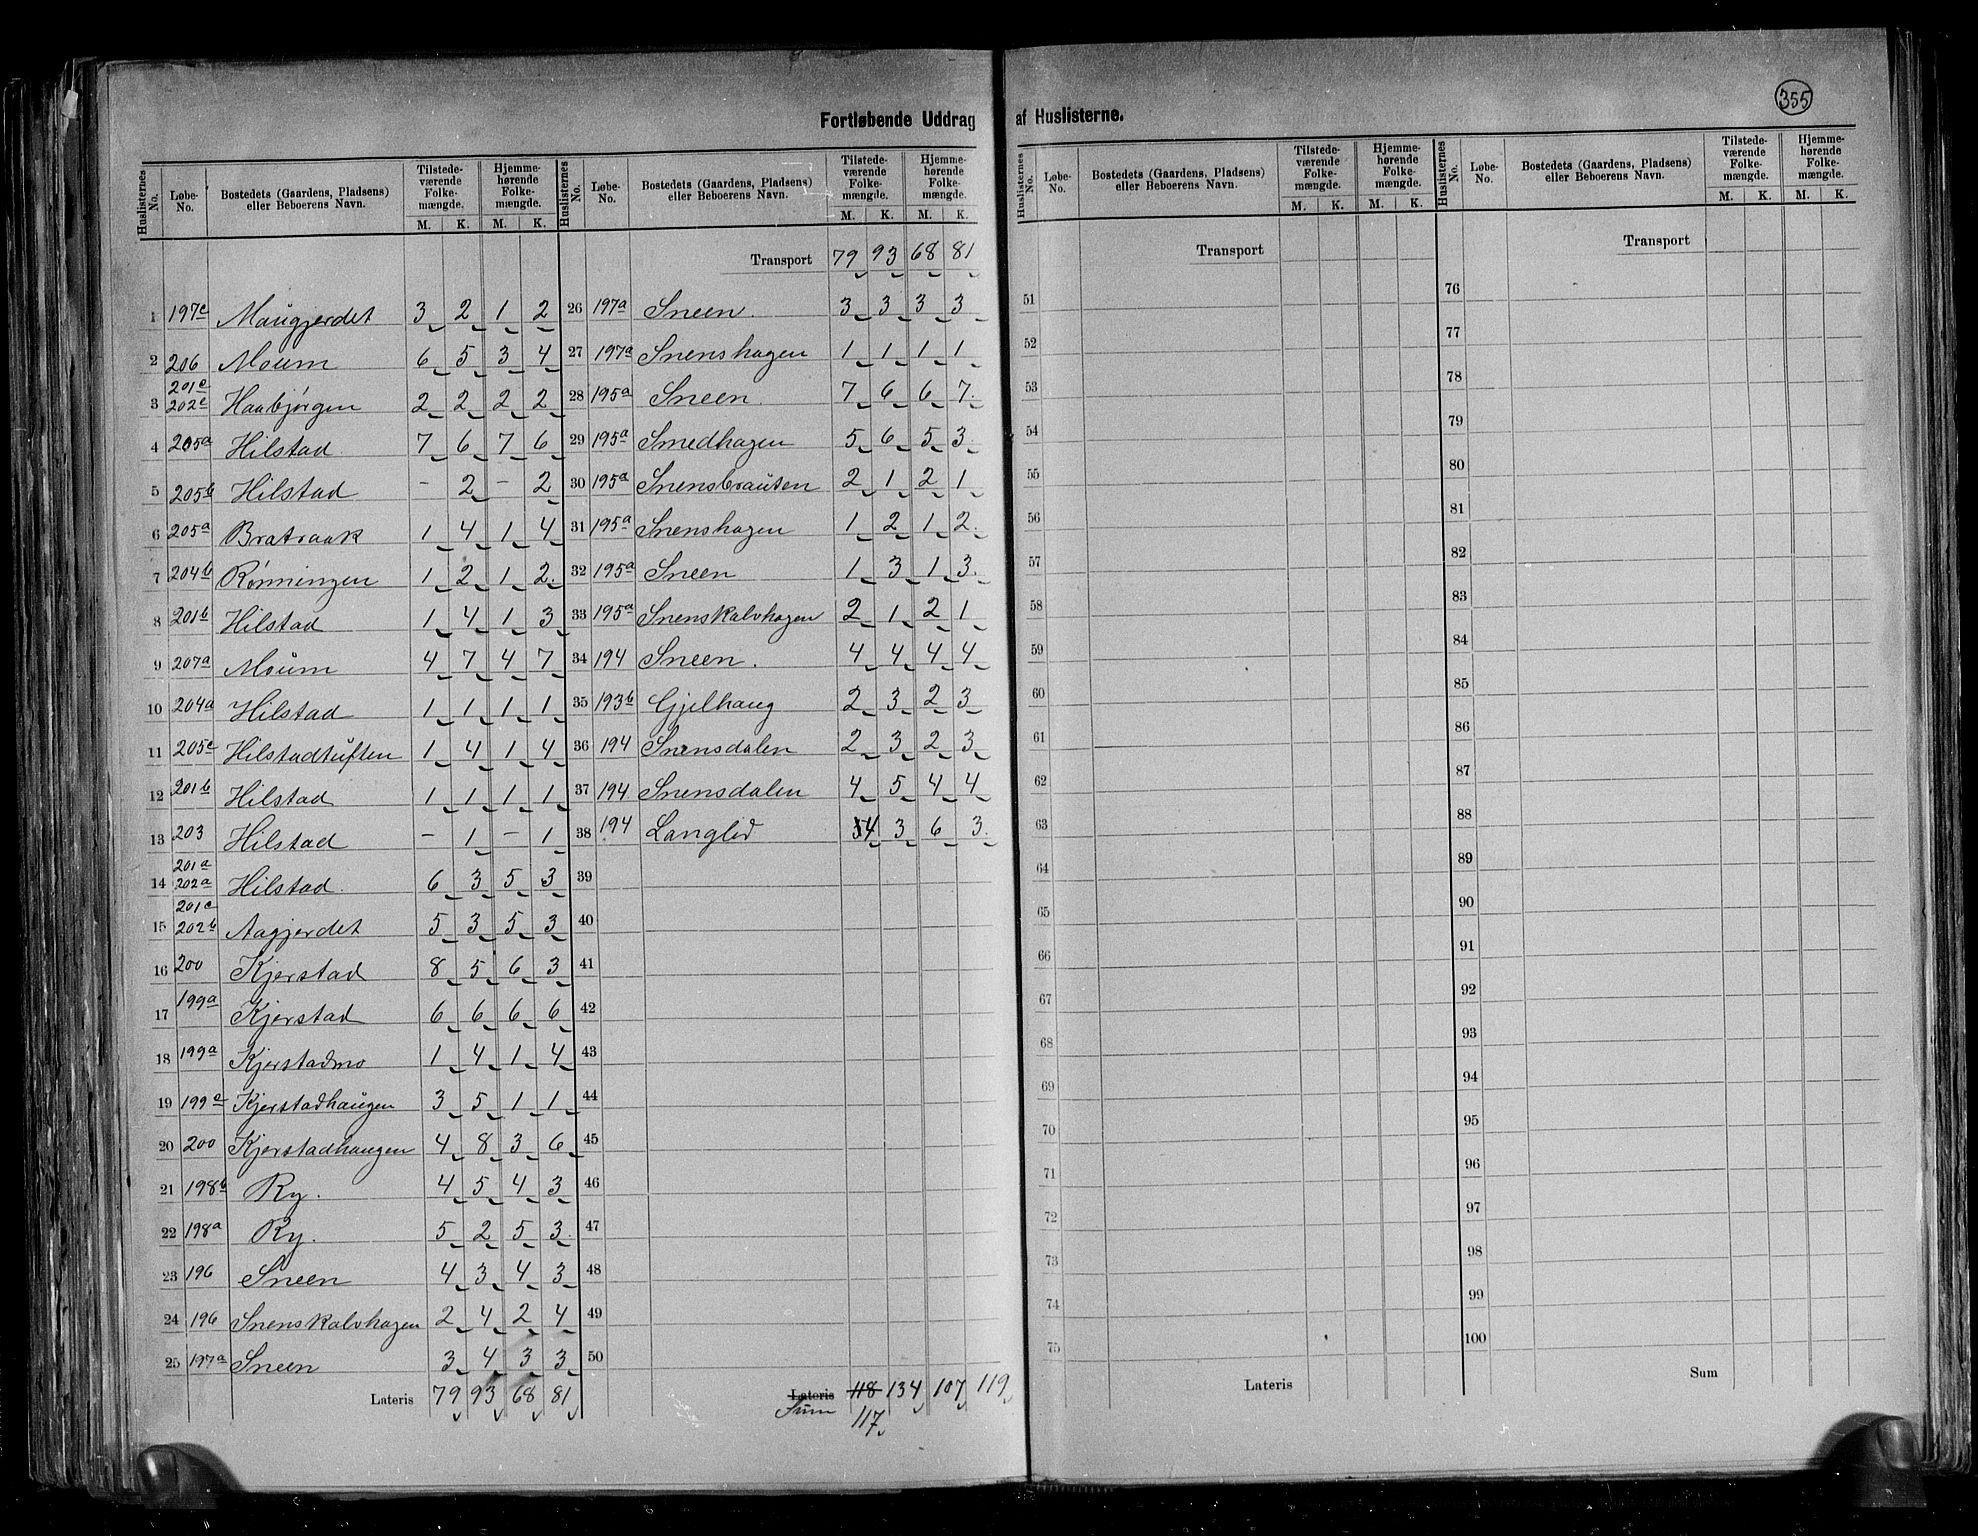 355
Fortløbende Uddrag af Huslisternes.
Huslisternes No. | Løbe-No. | Bostedets (Gaardens, Pladsens) eller Beboerens Navn. | Tilstedeværende Folkemængde. M. K. | Hjemmehørende Folkemængde. M. K.
1 197c Maugjerdet 3 2 1 2
2 206 Moum 6 5 3 4
3 201c 202c Haabjørgen 2 2 2 2
4 205a Hilstad. 7 6 7 6
5 205b Hilstad - 2 - 2
6 205a Bratraak 1 4 1 4
7 204b Rønningen 1 2 1 2.
8 201b Hilstad 1 4 1 3
9 207a Moum 4 7 4 7
10 204a Hilstad 1 1 1 1
11 205c Hilstadtuften 1 4 1 4
12 201b Hilstad 1 1 1 1
13 203 Hilstad - 1 - 1
14 201a 202a Hilstad. 6 3 5 3
15 201c 202b Aagjerdet 5 3 5 3
16 200 Kjerstad 8 5 6 3
17 199a Kjerstad 6 6 6 6
18 199a Kjerstadmo 1 4 1 4
19 199c Kjerstadhaugen 3 5 1 1
20 200 Kjerstadhaugen 4 8 3 6
21 198b Ry. 4 5 4 3
22 198a Ry. 5 2 5 3
23 196 Sneen 4 3 4 3
24 196 Snenskalvhagen 2 4 2 4
25 197a Sneen 3 4 3 3
Lateris 79 93 68 81
Huslisternes No. | Løbe-No. | Bostedets (Gaardens, Pladsens) eller Beboerens Navn. | Tilstedeværende Folkemængde. M. K. | Hjemmehørende Folkemængde. M. K.
Transport 79 93 68 81
26 197a Sneen. 3 3 3 3
27 197a Snenshagen 1 1 1 1
28 195a Sneen. 7 6 6 7.
29 195a Smedhagen 5 6 5 3
30 195a Snensbrauten 2 1 2 1
31 195a Snenshagen 1 2 1 2.
32 195a Sneen 1 3 1 3.
33 195a Snenskalvhagen 2 1 2 1
34 194 Sneen. 4 4 4 4
35 193b Gjelhaug 2 3 2 3
36 194 Snensdalen 2 3 2 3
37 194 Snensdalen 4 5 4 4
38 194 Langlid 4 3 6 3.
39
40
41
42
43
44
45
46
47
48
49
50
Lateris 118 134 107 119
Sum 117
Huslisternes No. | Løbe-No. | Bostedets (Gaardens, Pladsens) eller Beboerens Navn. | Tilstedeværende Folkemængde. M. K. | Hjemmehørende Folkemængde. M. K.
Transport
51
52
53
54
55
56
57
58
59
60
61
62
63
64
65
66
67
68
69
70
71
72
73
74
75
Lateris
Huslisternes No. | Løbe-No. | Bostedets (Gaardens, Pladsens) eller Beboerens Navn. | Tilstedeværende Folkemængde. M. K. | Hjemmehørende Folkemængde. M. K.
Transport
76
77
78
79
80
81
82
83
84
85
86
87
88
89
90
91
92
93
94
95
96
97
98
99
100
Sum